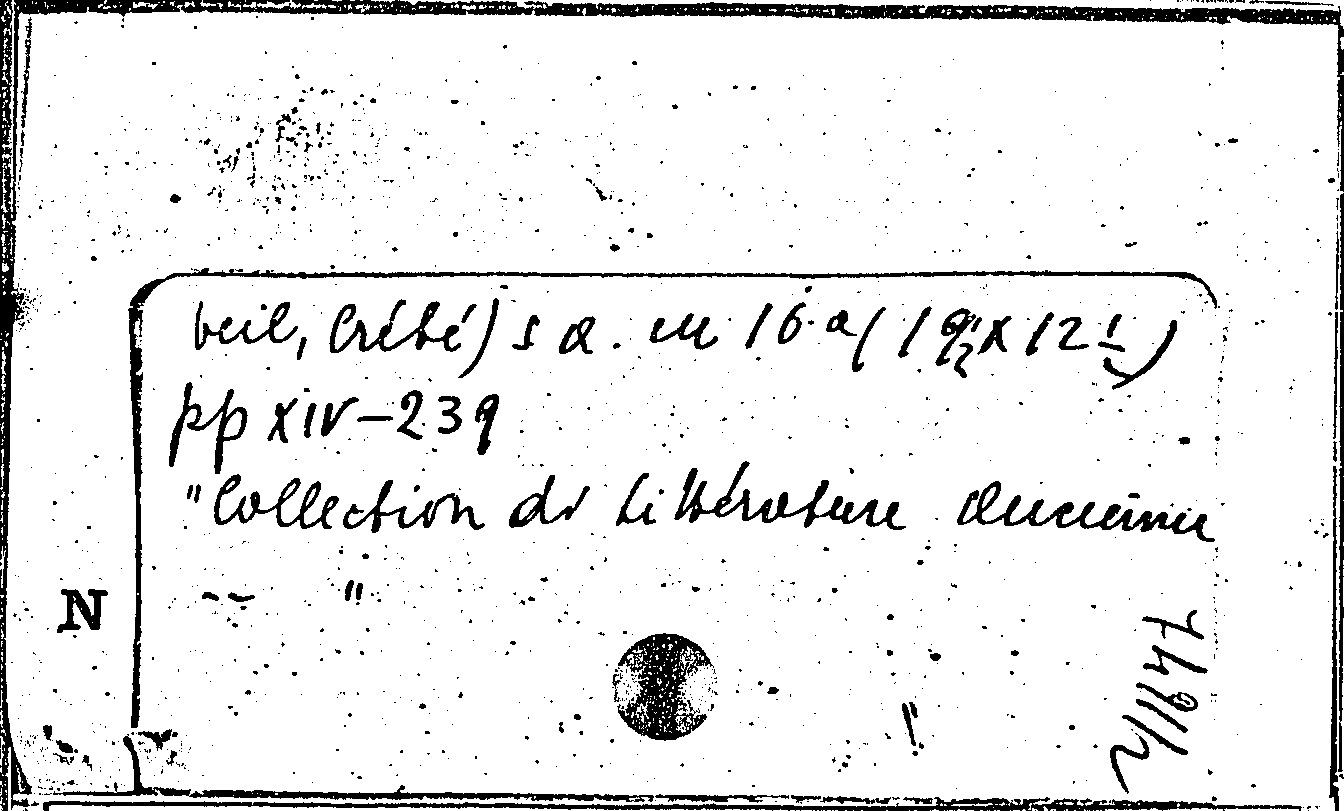 beil, Crété) s a. in 16.a ( 19½ x 12 ½ )
pp XIV-239
"Collection de Littérature
-- "
N